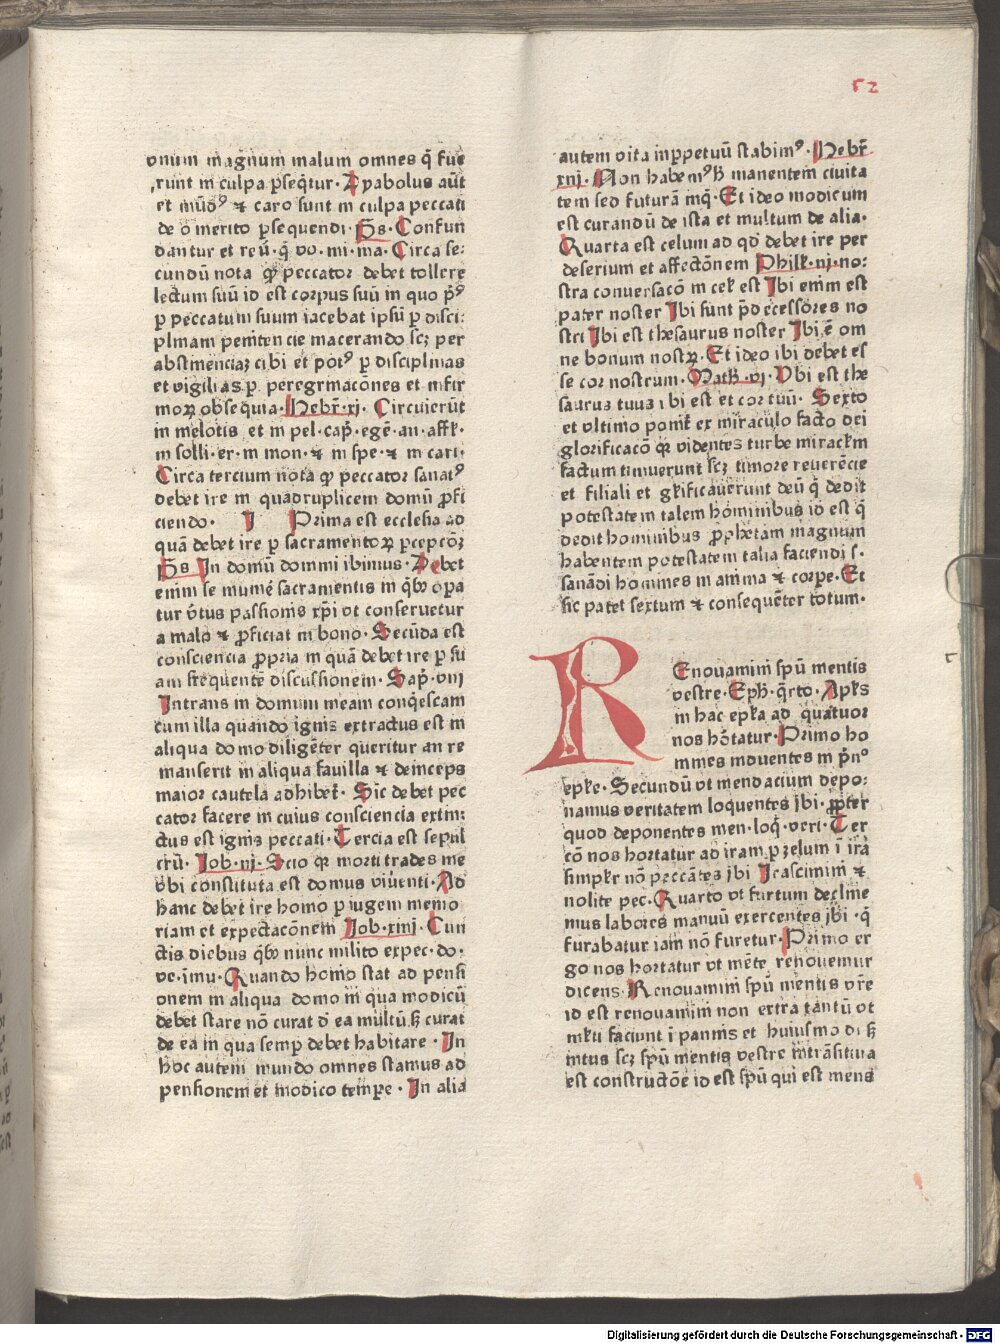 52
onum magnum malum omnes q̄ fue
runt in culpa ꝑseqn̄tur. Dyabolus aūt
et mūdꝰ ⁊ caro sunt in culpa peccati
de ō merito ꝑsequendi. Ps. Confun
dantur et reū. q̄ vo. mi. ma. Circa se:
cundū nota ꝙ peccator debet tollere
lectum suū id est corpus suū in quo pͥꝰ
ꝑ peccatum suum iacebat ipsū ꝑ disci:
plinam penitencie macerando scꝫ per
abstinenciaꝫ cibi et potꝰ ꝑ disciplinas
et vigilias ꝑ peregrinacōnes et infir
moꝝ obsequia. Hebr̄. xj. Circuierūt
in melotis et in pel. cap̄. egē. an. afflꝭ.
in solli. er. in mon. ⁊ in spe. ⁊ in cari.
Circa tercium nota ꝙ peccator sanatꝰ
debet ire in quadruplicem domū ꝓfi
ciendo. I Prima est ecclesia ad
quā debet ire ꝑ sacramentoꝝ ꝑcepcōꝫ
Ps In domū domini ibimus. Debet
enim se munirē sacramentis in qͥbꝰ oꝑa
tur v̄tus passionis xp̄i vt conseruetur
a malo ⁊ ꝓficiat in bono. Secūda est
consciencia ꝓpria in quā debet ire ꝑ su
am frequentē discussionem. Sap̄. viij
Intrans in domum meam conq̄escam
cum illa quando ignis extractus est in
aliqua domo diligēter queritur an re
manserit in aliqua fauilla ⁊ deinceps
maior cautela adhibet̄. Sic debet pec
cator facere in cuius consciencia extin:
ctus est ignis peccati. Tercia est sepul
crū. Job. iij. Scio qꝛ morti trades me
vbi constituta est domus viuenti. Ad
hanc debet ire homo ꝑ iugem memo
riam et expectacōnem Job. xiiij. Cun
ctis diebus qͥbꝰ nunc milito expec. do.
ve. īmu. Quando homo stat ad pensi
onem in aliqua domo in qua modicū
debet stare nō curat ō ea multū sꝫ curat
de ea in qua semꝑ debet habitare. In
hoc autem mundo omnes stamus ad
pensionem et modico tempore. In alia
autem vita inꝑpetuū stabimꝰ. Hebr̄
xiij. Non habemꝰ hͨ manentem ciuita
tem sed futurā inq̄. Et ideo modicum
est curandū de ista et multum de alia.
Quarta est celum ad qd̄ debet ire per
deserium et affectōnem Philꝭ. iij. no:
stra conuersacō in celꝭ est Ibi enim est
pater noster Ibi sunt p̄decessores no
stri Ibi est thesaurus noster Ibi ē om
ne bonum nostꝝ. Et ideo ibi debet es
se cor nostrum. Math̄. vj. Vbi est the
saurus tuus ibi est et cor tuū. Sexto
et vltimo ponit̄ ex miraculo facto dei
glorificacō qꝛ videntes turbe miraclꝭm
factum timuerunt scꝫ timore reuerēcie
et filiali et glꝭificauerunt deū q̄ dedit
potestatem talem hominibus id est q̄
dedit hominibus ꝓphetam magnum
habentem potestatem talia faciendi s.
sanādi homines in anima ⁊ corpe. Et
sic patet sextum ⁊ consequēter totum.
REnouamini spū mentis
vestre. Eph̄. q̄rto. Aplꝭs
in hac epłꝭa ad quatuor
nos hōtatur. Primo ho
mines mouentes in pͥnͦ
epłꝭe. Secundū vt mendacium depo:
namus veritatem loquentes jbi. ꝓpter
quod deponentes men. loq̄. veri. Ter
cō nos hortatur ad iram ꝑ zelum ī irā
simplꝭr nō peccātes jbi Irascimini ⁊
nolite pec. Quarto vt furtum decline
mus labores manuū exercentes jbi. q̄
furabatur iam nō furetur. Primo er
go nos hortatur vt mēte renouemur
dicens. Renouamini spū mentis vr̄e
id est renouamini non extra tantū vt
mlꝭti faciunt ī pannis et huiusmodi sꝫ
intus scꝫ spū mentis vestre intrāsitiua
est constructōe id est spū qui est mens
Digitalisierung gefördert durch die Deutsche Forschungsgemeinschaft - DFG